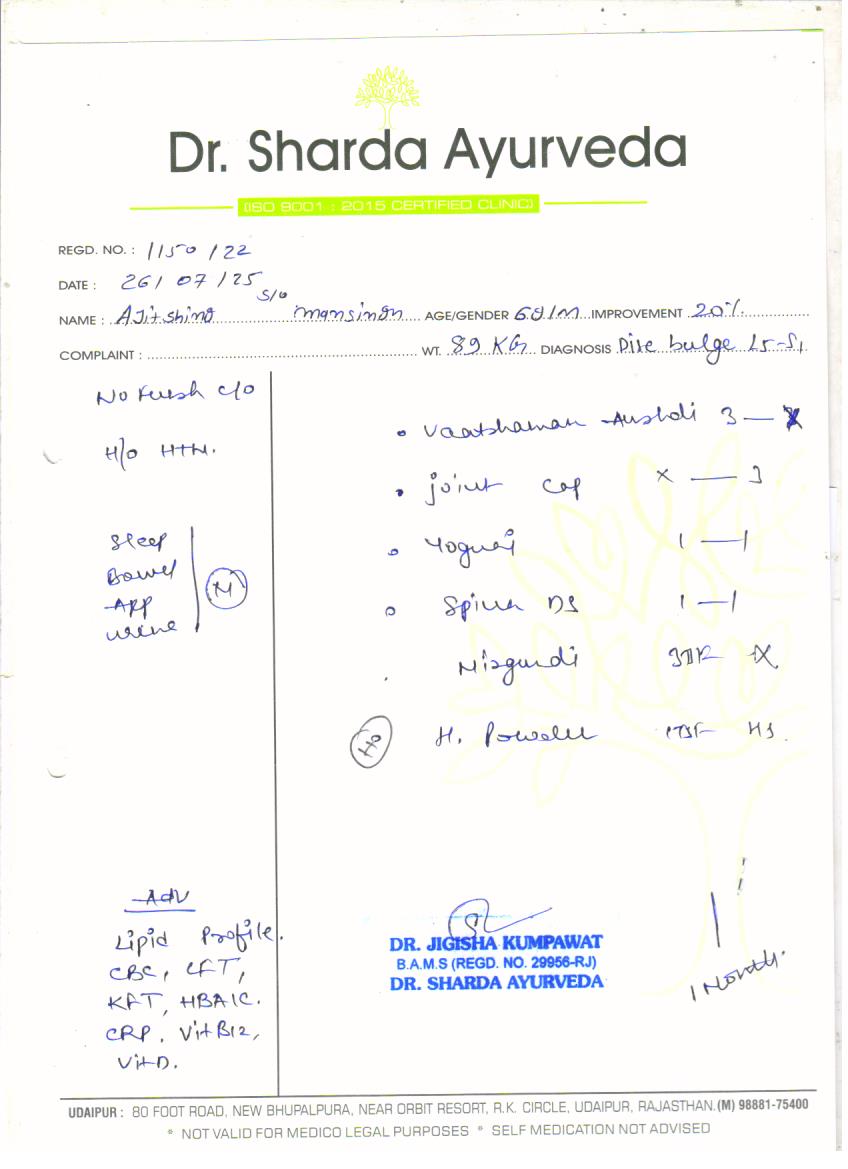 Dr. Sharda Ayurveda
(ISO 9001 : 2015 CERTIFIED CLINIC)
REGD. NO. : 1150 / 22
DATE : 26 / 07 / 25
S/o
NAME : AJitshing mansingh AGE/GENDER 69/M IMPROVEMENT 20%
COMPLAINT : WT. 89 KG DIAGNOSIS Disc bulge L5-S1
No Fresh c/o
H/o HTN.
Sleep
Bowel
App
urine
N
Vaatshaman Aushdi 3 — X
joint cap X — 3
Yograj 1 — 1
Spine DS 1 — 1
Nirgundi X
H. Powder HS.
Adv
Lipid Profile.
CBC, LFT,
KFT, HBA1C.
CRP, Vit B12,
Vit D.
DR. JIGISHA KUMPAWAT
B.A.M.S (REGD. NO. 29956-RJ)
DR. SHARDA AYURVEDA
1 Month.
UDAIPUR : 80 FOOT ROAD, NEW BHUPALPURA, NEAR ORBIT RESORT, R.K. CIRCLE, UDAIPUR, RAJASTHAN.(M) 98881-75400
* NOT VALID FOR MEDICO LEGAL PURPOSES * SELF MEDICATION NOT ADVISED